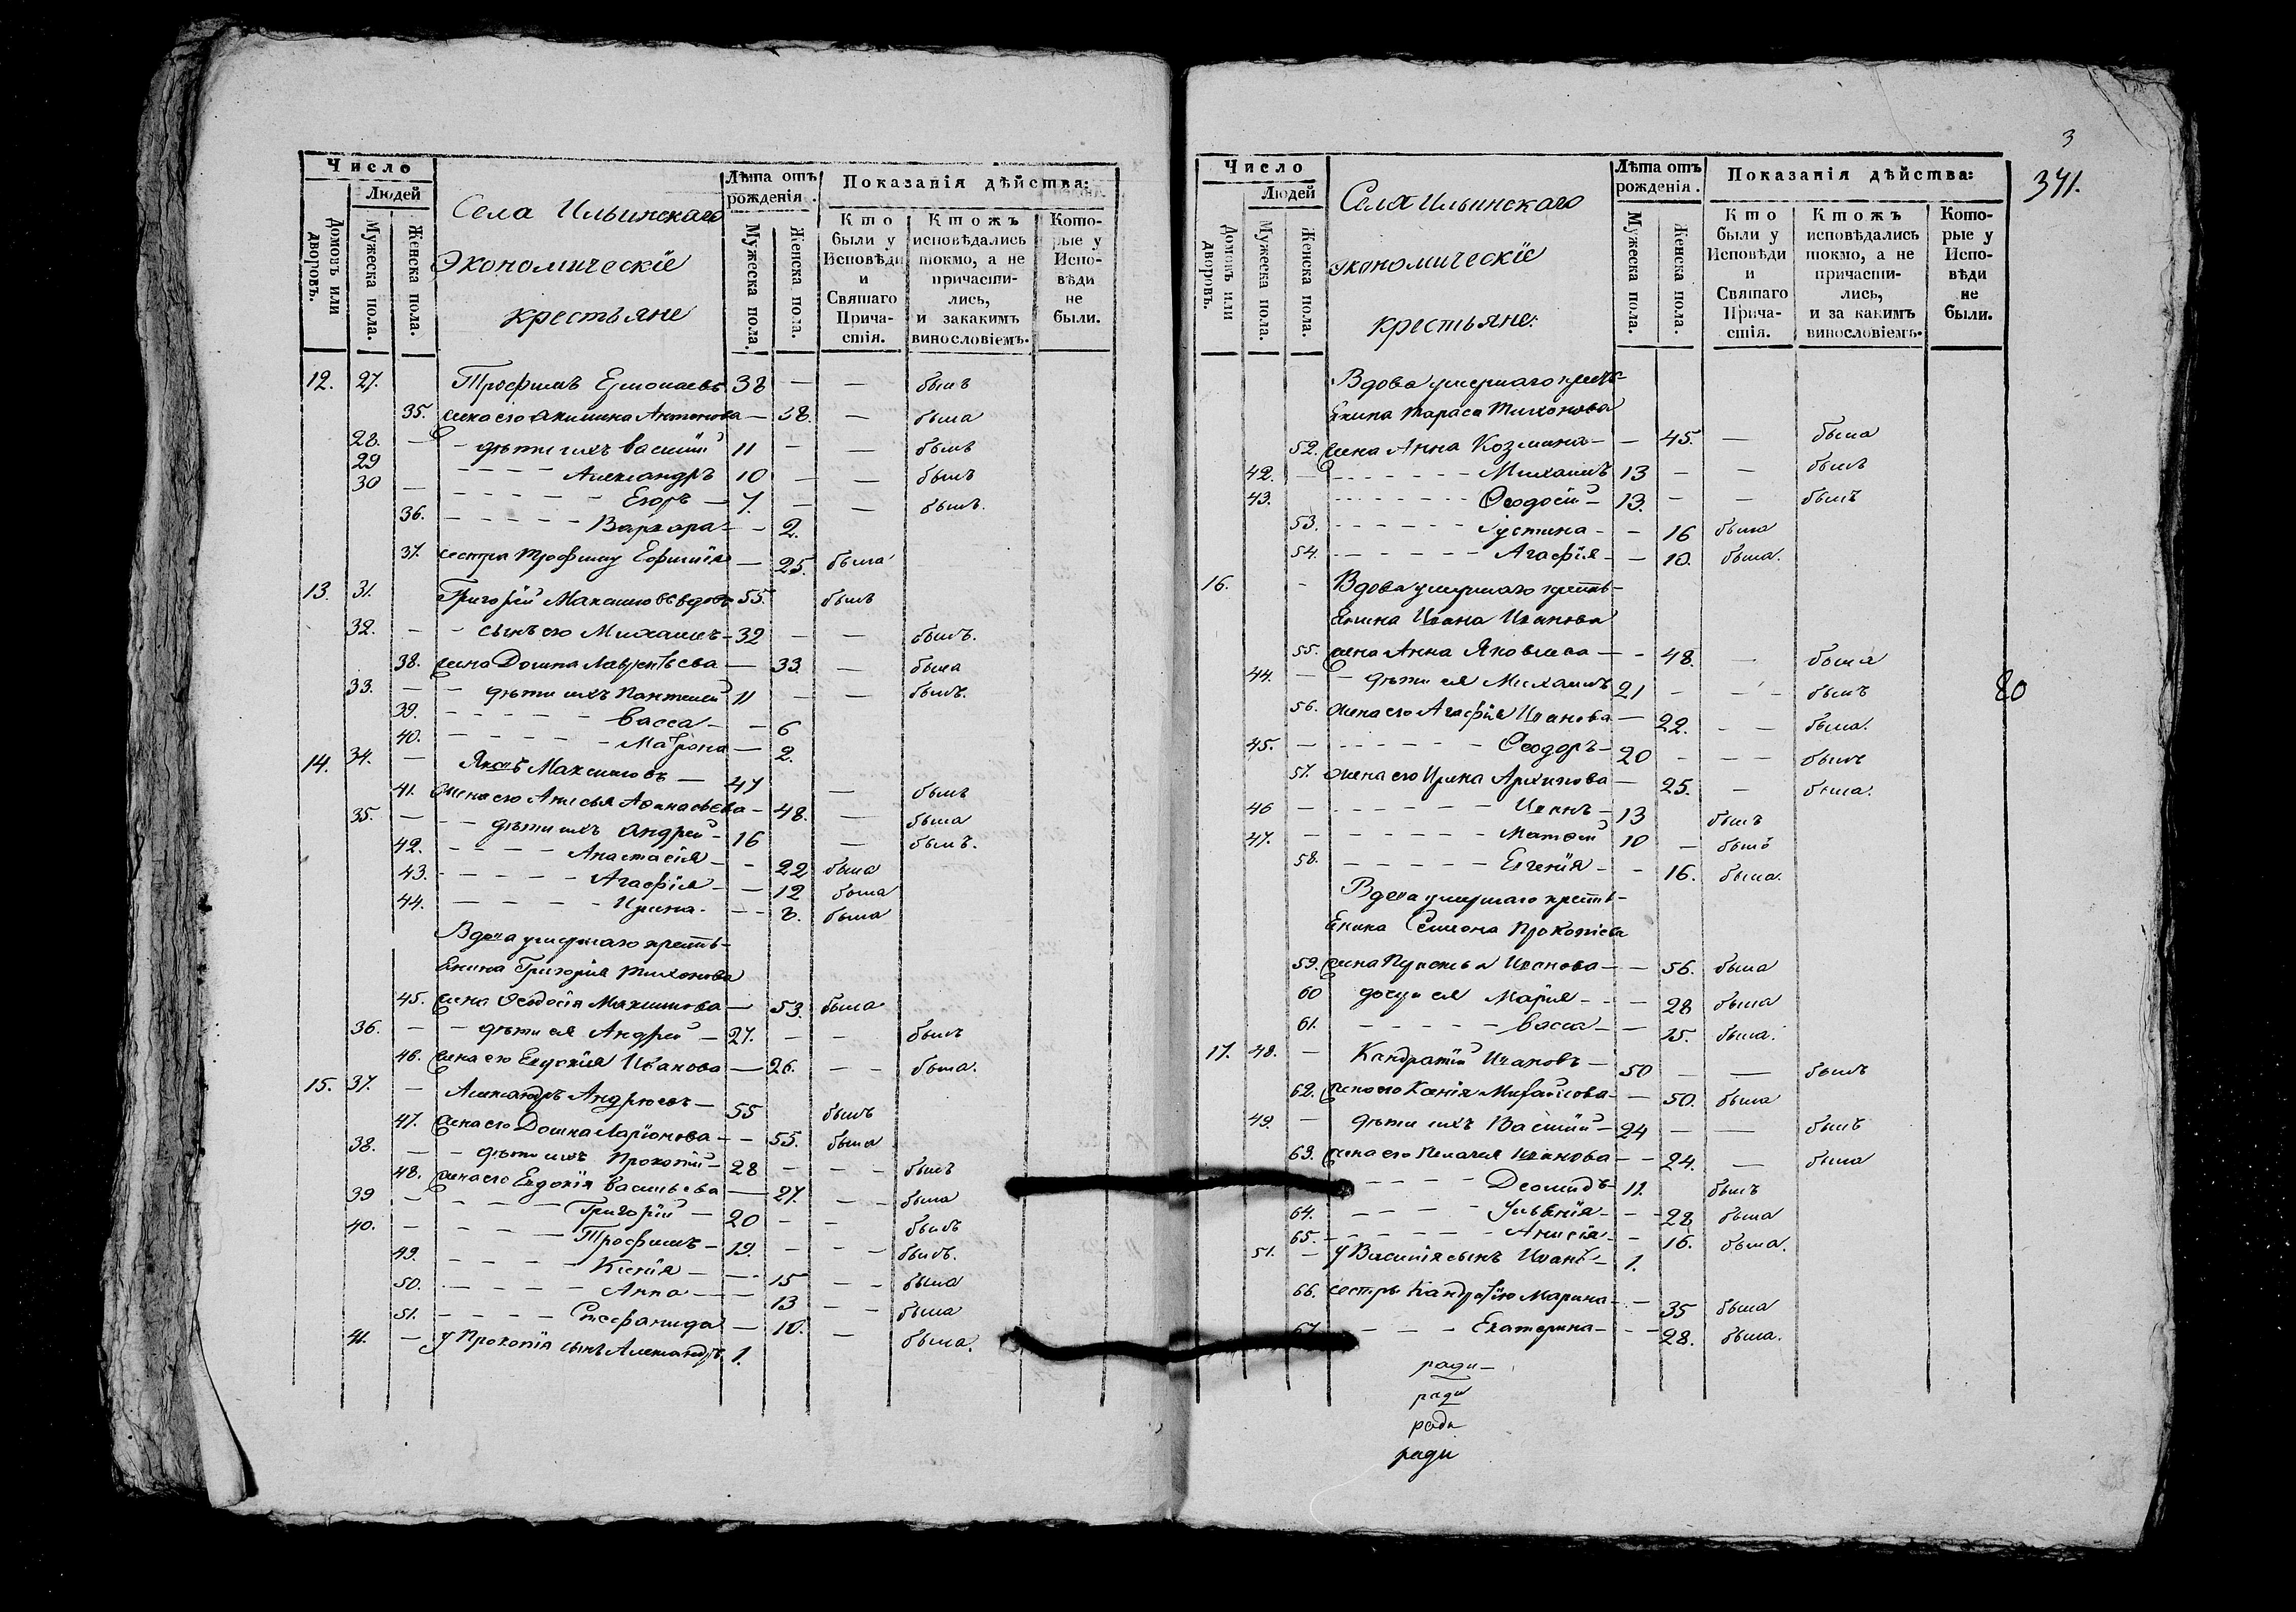 Число
Людей
Домовъ или дворовъ.
Мужеска пола.
Женска пола.
Села Ильинскаго
Экономическіе
крестьяне
Лѣта отъ рожденія.
Мужеска пола.
Женска пола.
Показанія дѣйства:
Кто были у Исповѣди и Святаго Прича-стія.
Ктожъ исповѣдались токмо, а не причасти-лись, и закакимъ винословіемъ.
Кото-рые у Испо-вѣди не были.
12. 27. Трофимъ 38 — — былъ
35. жена его Акилина Антонова — 38. — была
28. — - дѣти ихъ Василій 11 — — былъ
29 - - - - Александръ 10 — — былъ
30 — - - - - - Егоръ — 7. — — былъ.
36. - - - - - Варвара - - 2.
37. сестра Трофиму Ефимія — 25. была
13. 31. Григорій Максимовъ вдовъ 55. былъ
32. — - сынъ его Михаилъ - 32 — — былъ.
38. жена Домна Лаврентьева — 33. — была
33. — - дѣти ихъ Пантелей 11 — — былъ.
39. - - - - - Васса - - 6
40. - - - - - Матрона — 2.
14. 34. — Яковъ Максимовъ — 47 — былъ
41. жена его Анисья Афанасьева - 48. — была
35. — - - дѣти ихъ Андрей - 16 — былъ.
42. - - - - Анастасія - - 22 была
43. - - - - - Агафія - - 12 была
44. - - - - - Ирина. - - 3. была
Вдова умершаго кресть-
янина Григорія Тихонова
45. жена Ѳеодосія Максимова — 53. была
36. — - дѣти ея Андрей — 27. — — былъ
46. жена его Евдокія Иванова — 26. — — была.
15. 37. — Александръ Андреевъ — 55 былъ
47. жена его Домна Ларіонова - - 55. была
38. — - дѣти ихъ Прокопій - 28 — — - былъ
48. жена его Евдокія Васильева — 27. — - была
39 — - - - Григорій — 20 — — былъ
40. — - - - Трофимъ - 19. — — - былъ.
49. - - - - Ксенія - — 15 — - была
50. - - - - Анна - — 13 — - была
51. - - - - Стефанида — 10. — была.
41. — у Прокопія сынъ Александръ 1.
3
341.
Число
Людей
Домовъ или дворовъ.
Мужеска пола.
Женска пола.
Села Ильинскаго
экономическіе
крестьяне:
Лѣта отъ рожденія.
Мужеска пола.
Женска пола.
Показанія дѣйства:
Кто были у Исповѣди и Святаго Прича-стія.
Ктожъ исповѣдались токмо, а не причасти-лись, и за какимъ винословіемъ.
Кото-рые у Испо-вѣди не были.
Вдова умершаго кресть-
янина Тараса Тихонова
52. жена Анна Козмина - — 45. — была
42. — - - - - - Михаилъ 13 — — былъ
43. - - - - - - Ѳеодосій - 13. — — былъ
53. - - - - - - Іустина - - 16 была
54. - - - - - - Агафія - - 10. была.
16. - Вдова умершаго кресть-
янина Ивана Иванова
55. жена Анна Яковлева — - 48. — была
44. — - дѣти ея Михаилъ 21 - - - былъ
56. жена его Агафія Иванова — 22. - - была.
45. — - - - - - Ѳеодоръ - 20 - - - былъ
57. жена его Ирина Архипова — 25. - была.
46 — - - - - - Иванъ - 13 былъ
47. — - - - - - Матвей 10 — былъ
58. - - - - - Евгенія - - 16. была.
Вдова умершаго кресть-
янина Симеона Прокопіева
59. жена Иванова — - 56. была
60 дочери ея Марія - - - 28 была
61. - - - - - Васса - — 25. была.
17. 48. — Кандратій Ивановъ — 50 — — былъ
62. жена его Ксенія Михайлова - — 50. была
49. — дѣти ихъ Василій - 24 — — былъ
63. жена его Пелагея Иванова - - 24. — была
- - - - Деомидъ - 11. былъ
64. - - - - Ульянія - - 28 была
65. - - - - - Анисія - - 16. была.
51. — у Василія сынъ Иванъ - 1.
66. сестры Кандратію Марина - - 35 была
67. - - - Екатерина - - - 28. была.
80
ради -
ради
ради
ради